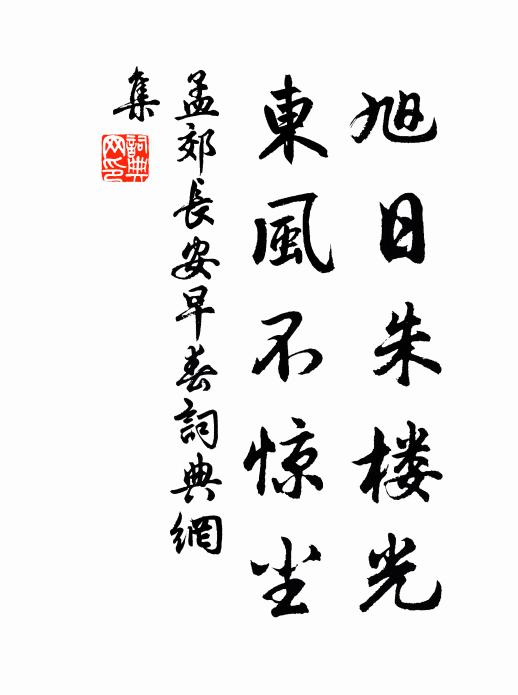 旭日朱楼光
東風不惊尘
孟郊長安早春詞典網
集
詞典
网印